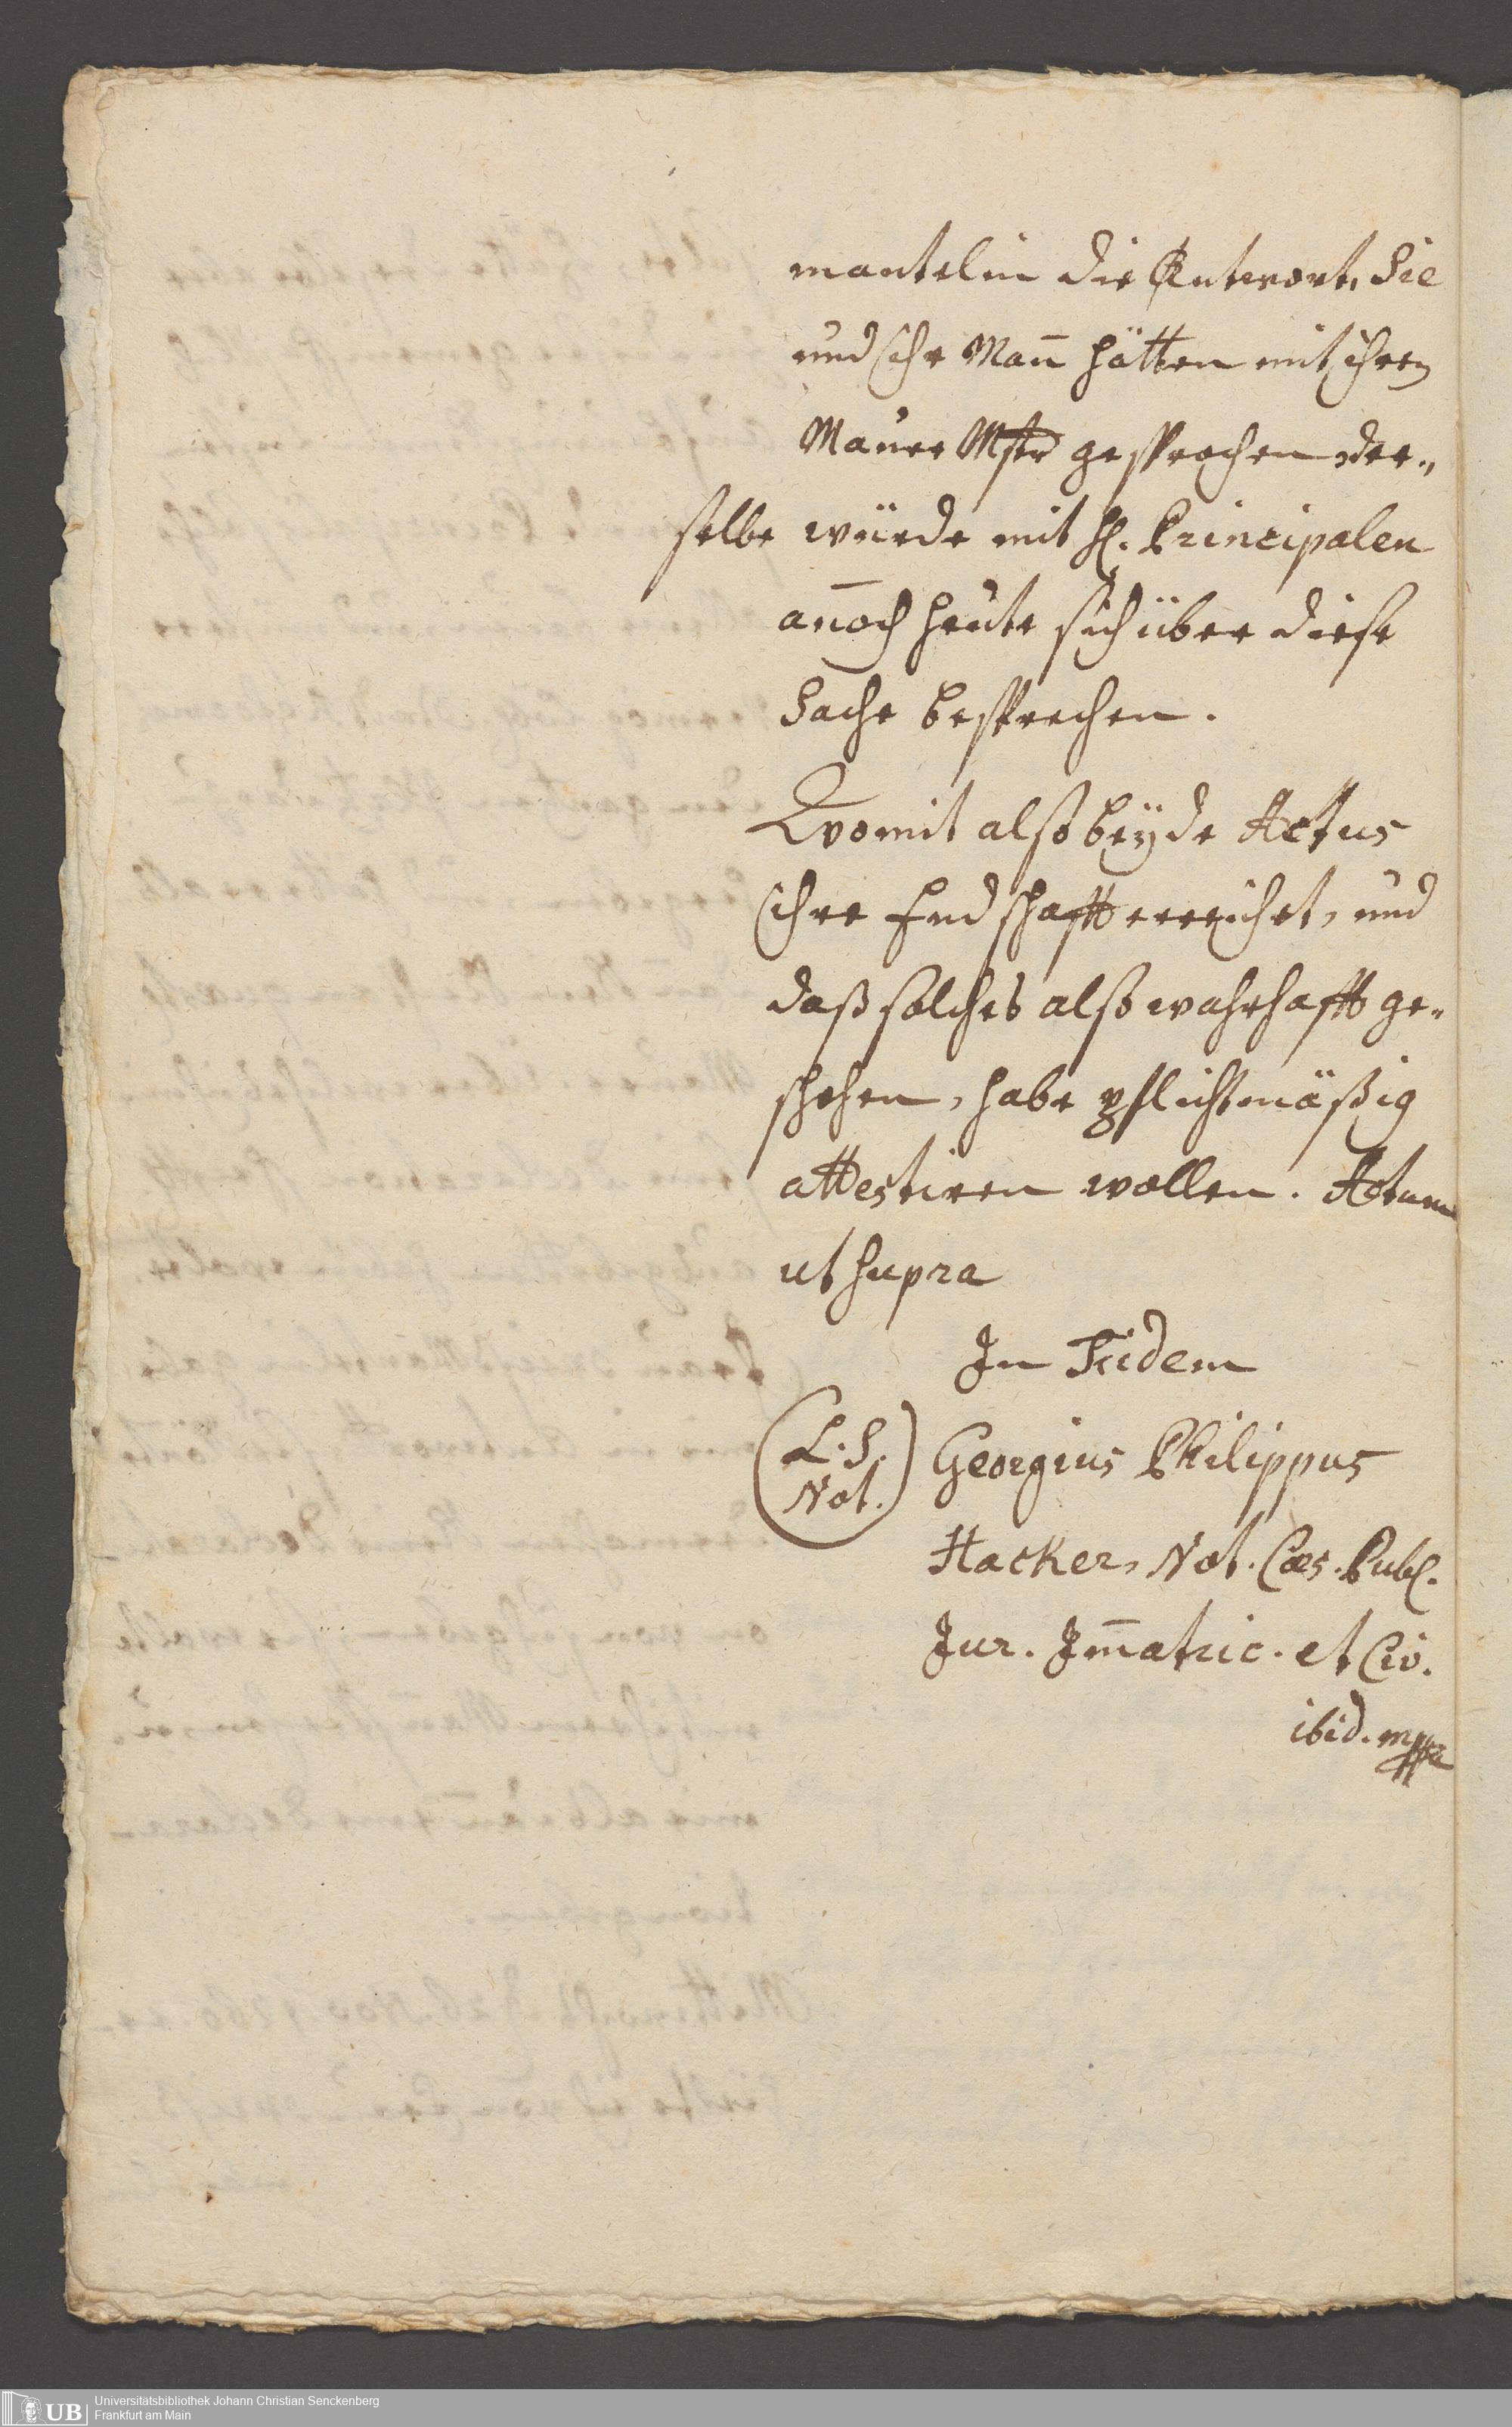 mantelin die Antwort, Sie
und ihr Man̄ hätten mit ihrem
Maurer Mstr gesprochen der„
selbe würde mit H. Principalen
an̄och heute sich über diese
Sache besprechen.
Womit also beÿde Actus
ihre Endschafft erreichet, und
daß solches also wahrhafft ge„
schehen, habe pflichtmäßig
attestiren wollen. Actum
ut supra
In Fidem
(L. S.
Not.)
Georgius Philippus
Hacker, Not. Cæs. Publ.
Jur. Im̄atric. et Civ.
ibid. mppra
UB
Universitätsbibliothek Johann Christian Senckenberg
Frankfurt am Main